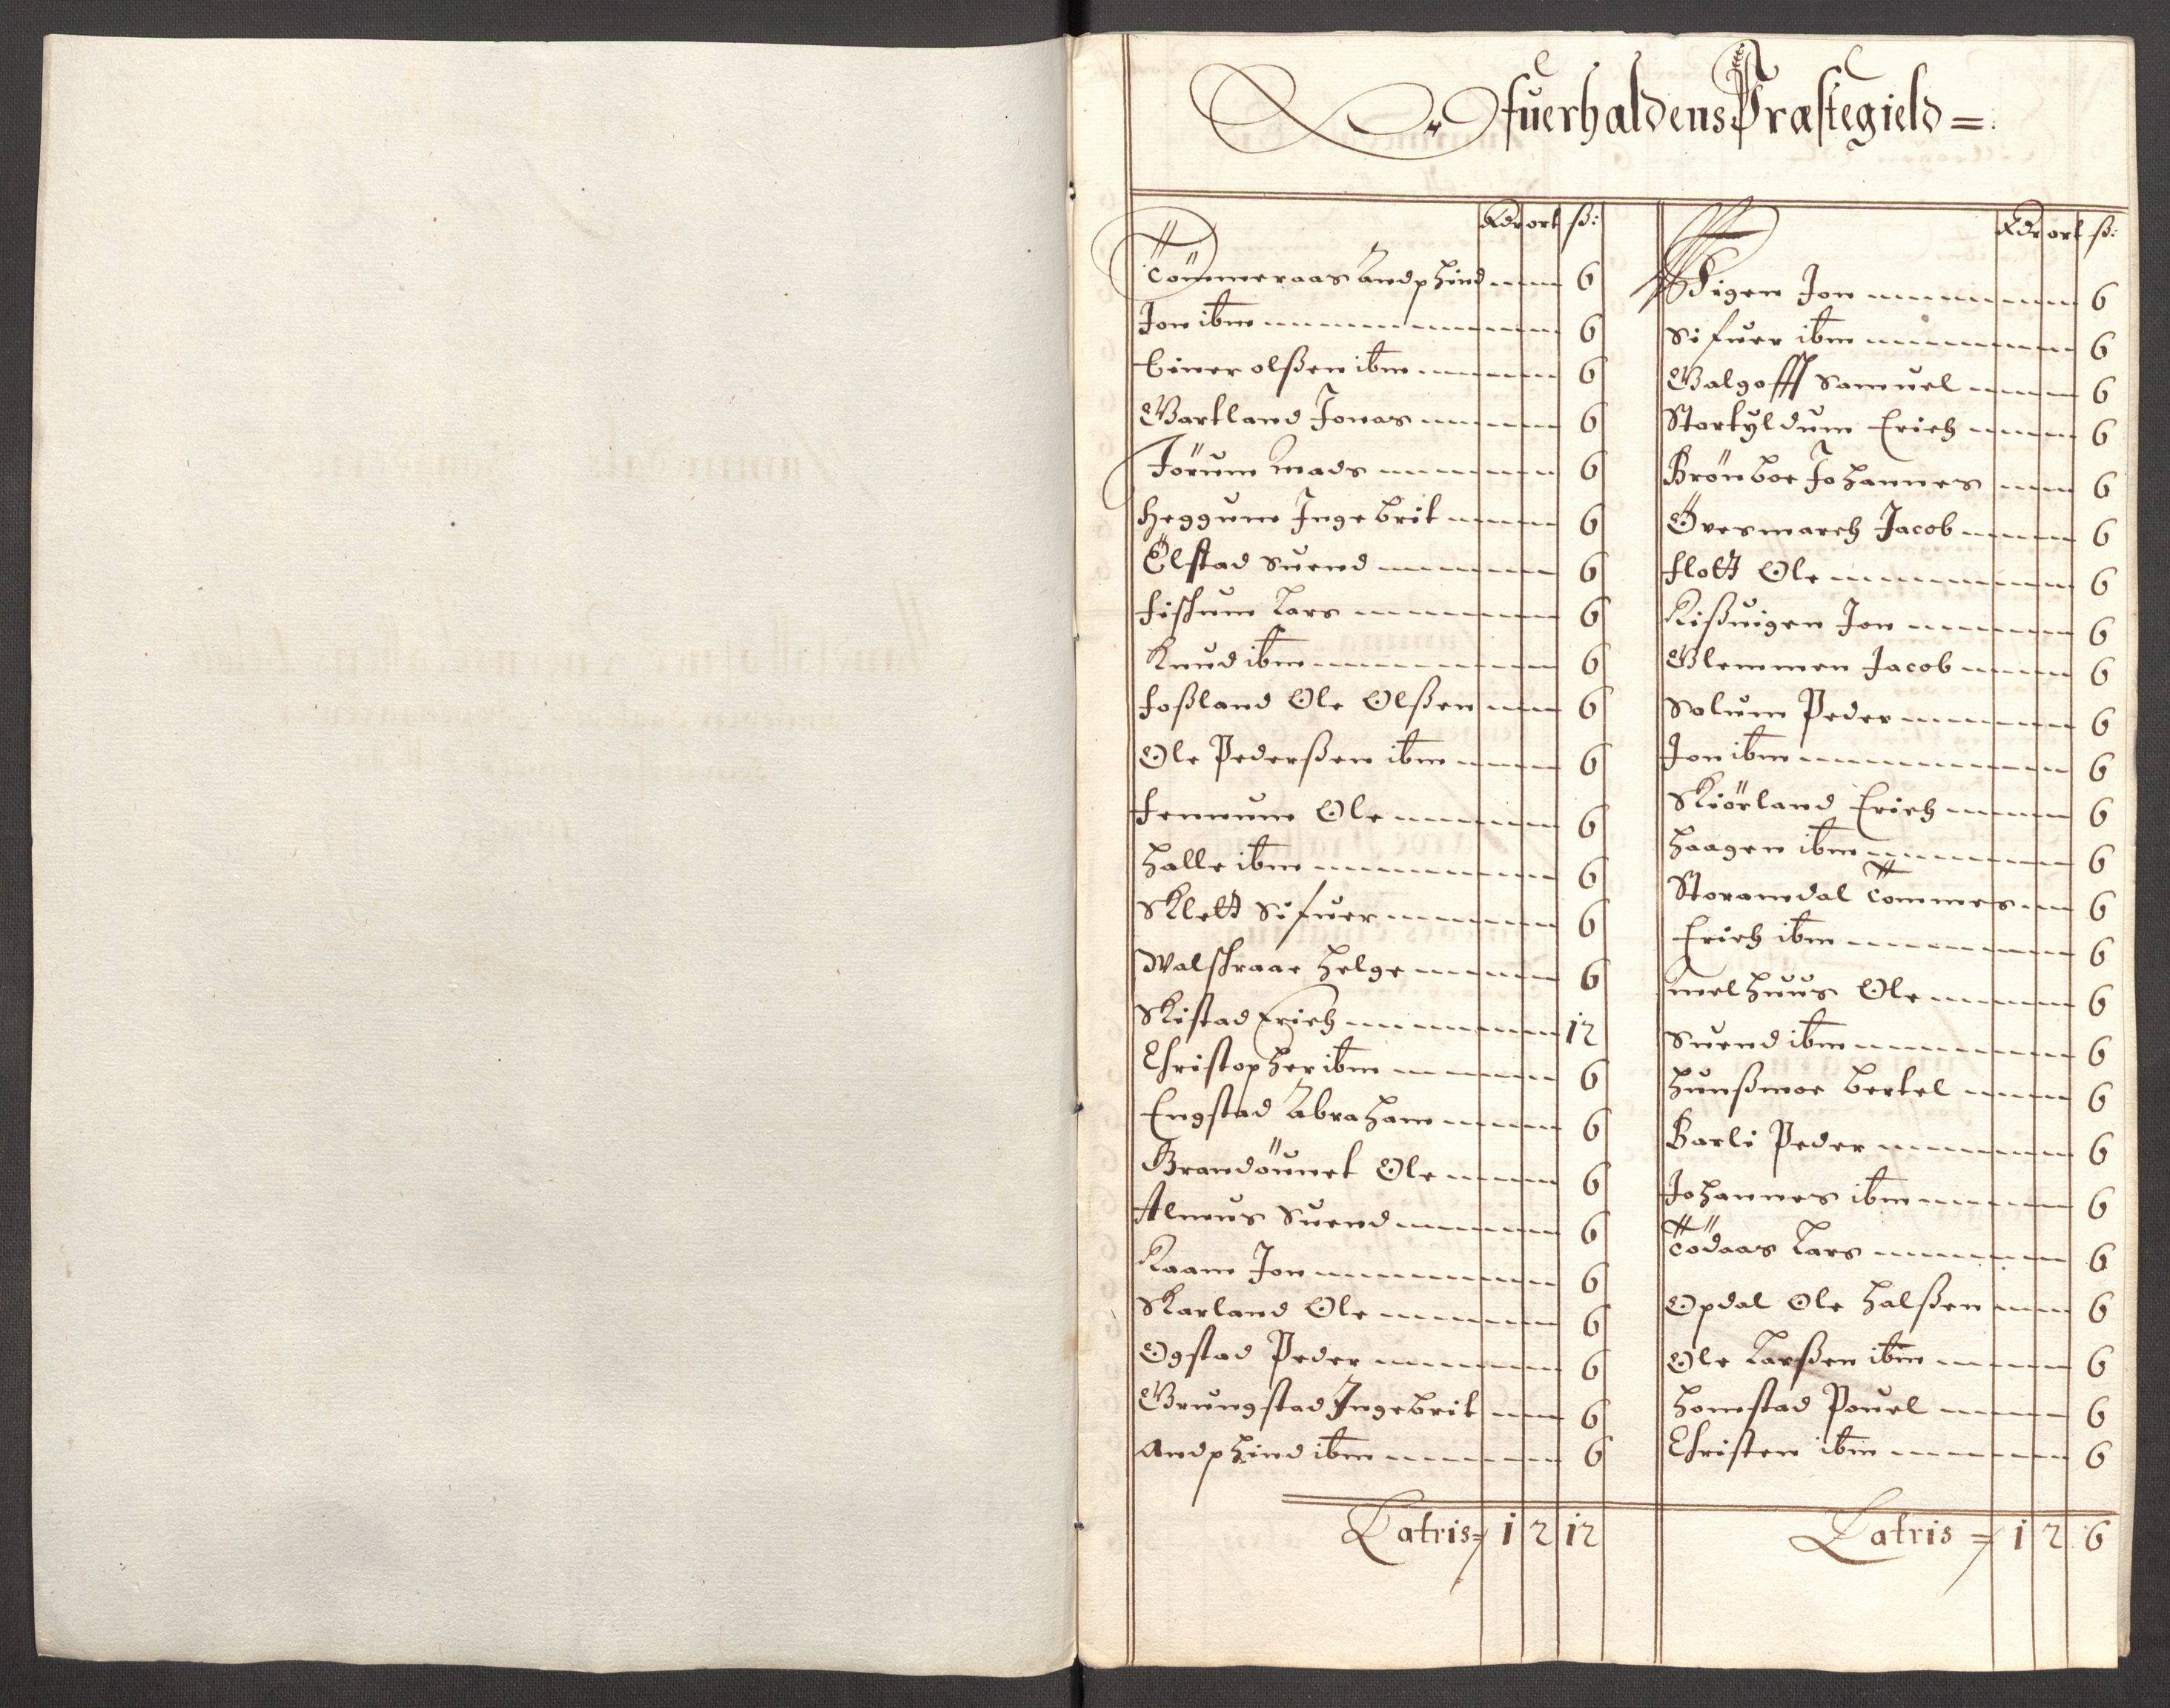 Ofuerhaldens Præstegield =
Rdr ort ß:
Tömmeraas Andphind 6
Jon ibm 6
Einer olßen ibm 6
Vartland Jonas 6
Jörum Mads 6
Heggum Ingebrit 6
Elstad Suend 6
fischum Lars 6
Knud ibm 6
foßland Ole Olßen 6
Ole Pederßen ibm 6
femnum Ole 6
Halle ibm 6
Sklett Sifuer 6
Walschraae Helge 6
Skistad Erich 12
Christopher ibm 6
Engstad Abraham 6
Brandöunet Ole 6
Almus Suend 6
Raam Jon 6
Skarland Ole 6
Ogstad Peder 6
Grungstad Ingebrit 6
Andphind ibm 6
Latris 1 2 12
Rdr ort ß:
Jon 6
Sifuer ibm 6
Galgofff Samuel 6
Stortyldum Erich 6
Brönboe Johannes 6
Övesmarch Jacob 6
flott Ole 6
Rißuigen Jon 6
Glemmen Jacob 6
Solum Peder 6
Jon ibm 6
Skiörland Erich 6
Haagen ibm 6
Storamdal Tommes 6
Erich ibm 6
melhuus Ole 6
Suend ibm 6
Hunßmoe bertel 6
Barli Peder 6
Johannes ibm 6
Tödaas Lars 6
Opdal Ole Halßen 6
Ole Larßen ibm 6
Homstad Pouel 6
Christen ibm 6
Latris = 1 2 6